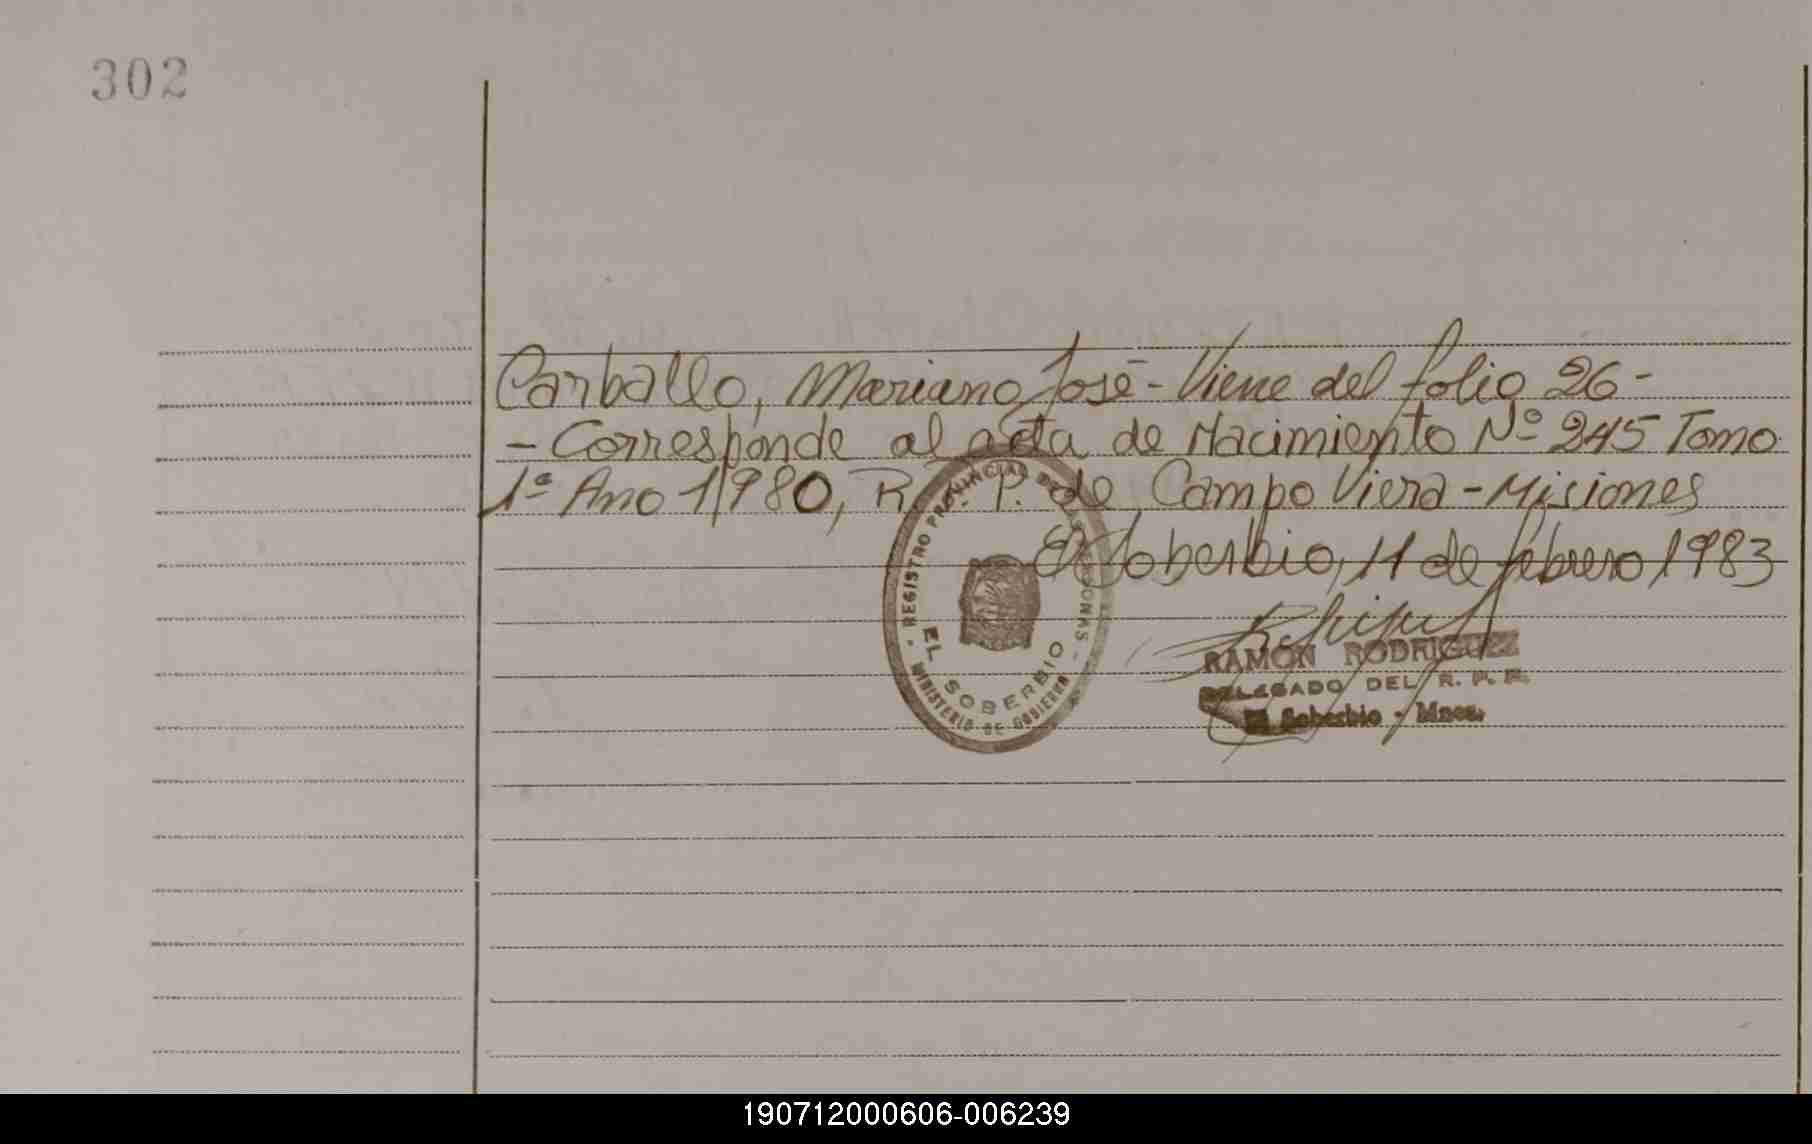 302
Carballo, Mariano José - Viene del folio 26 -
- Corresponde al acta de Nacimiento Nº 245 Tomo
1º Año 1980, R. P. de Campo Viera - Misiones
El Soberbio, 11 de febrero 1983
REGISTRO PROVINCIAL DE LAS PERSONAS
EL SOBERBIO
MINISTERIO DE GOBIERNO
RAMON RODRIGUEZ
DELEGADO DEL R. P. P.
El Soberbio - Mnes.
190712000606-006239